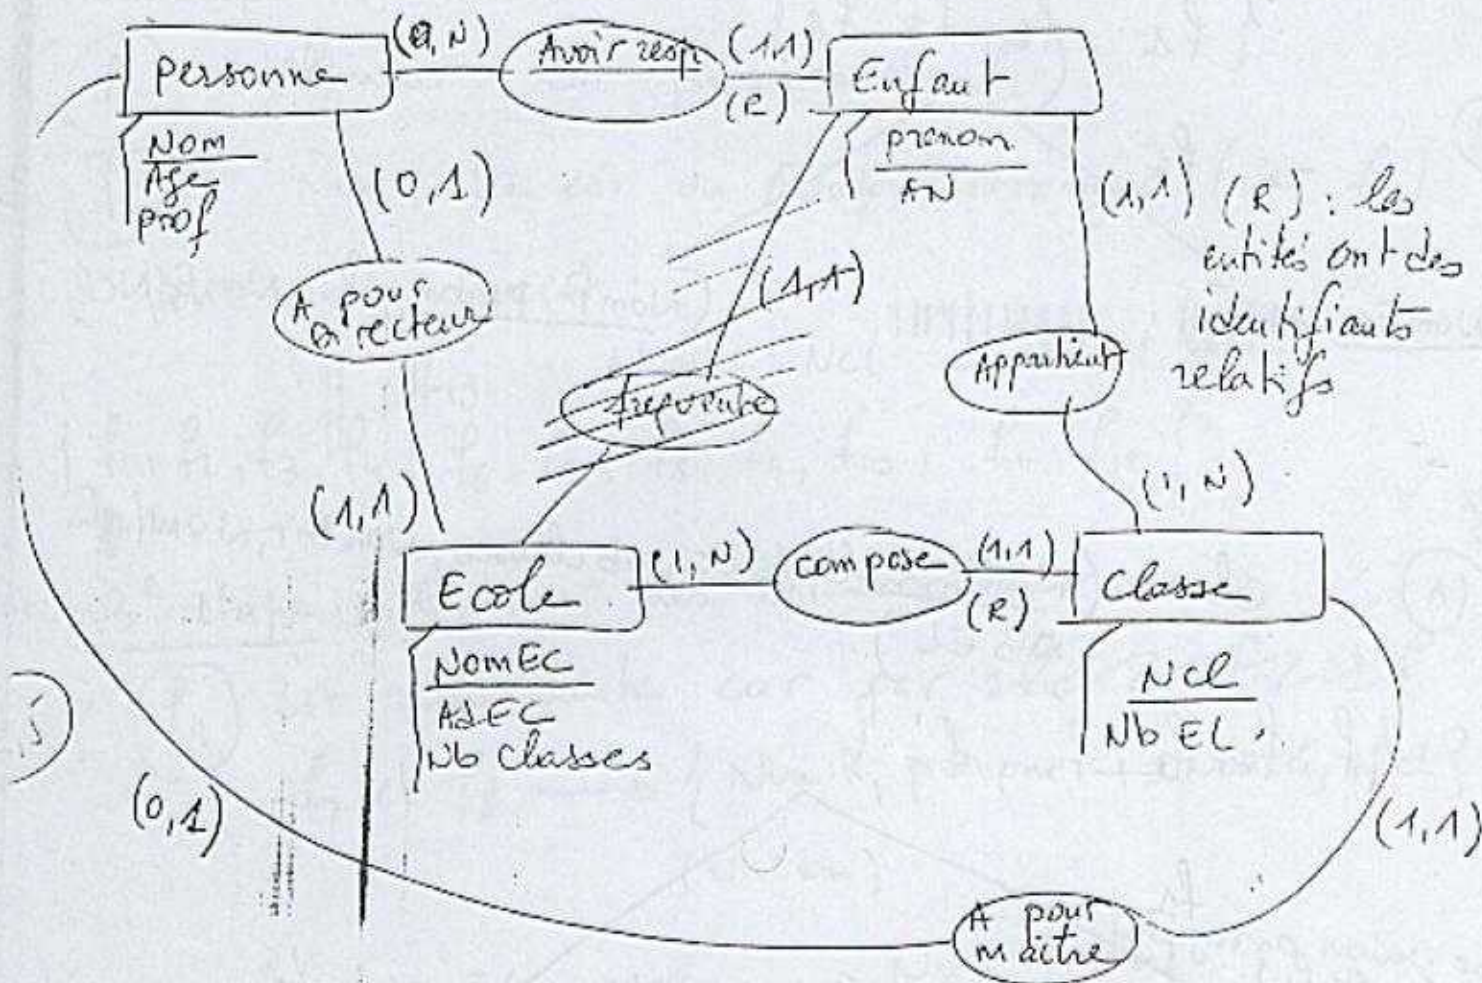 Personne (0,N) Avoir resp (1,1) Enfant
(R)
Nom
Age
prof
prenom
AN
(0,1)
(1,1) (R) : les
entités ont des
identifiants
relatifs
A pour
Directeur
(1,1)
frequente
Appartient
(1,1)
(1,N)
Ecole (1,N) compose (1,1) Classe
(R)
NomEC
AdEC
Nb Classes
NCl
Nb EL
(0,1)
(1,1)
A pour
maitre